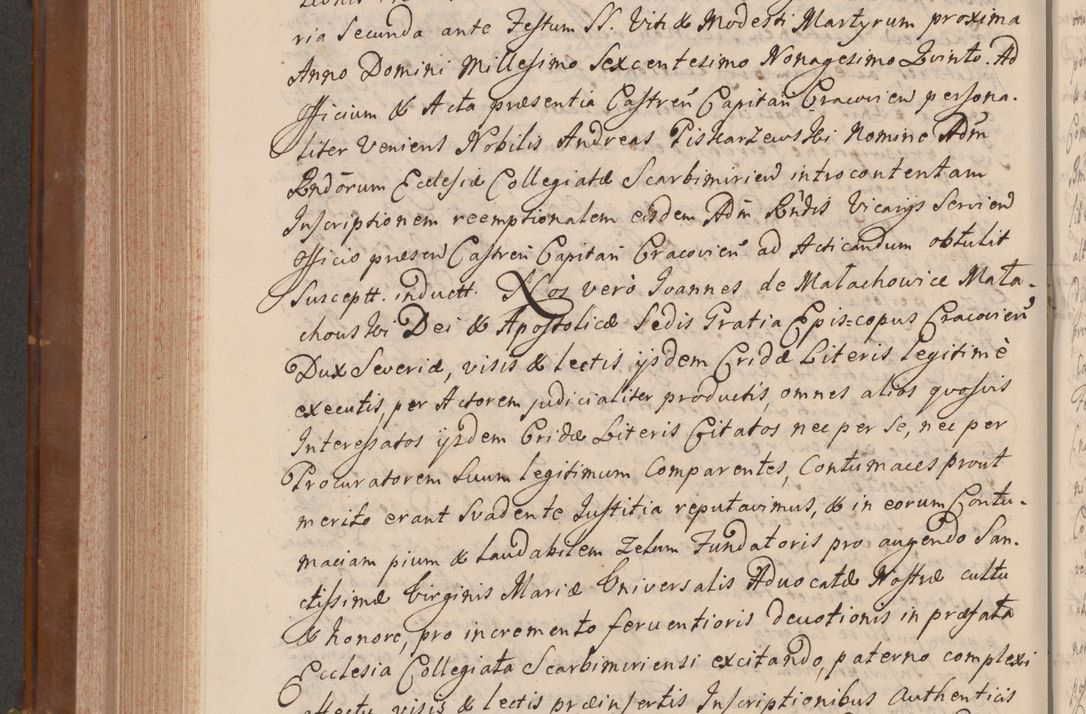 ria Secunda ante Festum SS. Viti & Modesti Martyrum proxima
Anno Domini Millesimo Sexcentesimo Nonagesimo Qvinto. Ad
Officium & Acta præsentia Castreñ Capitań Cracovien persona-
liter veniens Nobilis Andreas Piskarzewski Nomine Adm̃
Rndõrum Ecclesiæ Collegiatæ Scarbimirien introcontentam
Inscriptionem reemptionalem eisdem Adm̃ Rndis Vicarijs Servien
Officio præsen Castreñ Capitań Cracovieñ ad Acticandum obtulit
Susceptt. inductt. Nos verò Ioannes de Małachowice Mała-
chowski Dei & Apostolicæ Sedis Gratia Epis=copus Cracovieñ
Dux Severiæ, visis & lectis ijsdem Cridæ Literis legitimè
executis, per Actorem judicialiter productis, omnes alios qvosvis
Interessatos ijsdem Cridæ Literis Citatos nec per se, nec per
Procuratorem Suum legitimum Comparentes, Contumaces prout
merito erant Svadente Justitia reputavimus, & in eorum Contu-
maciam pium & laudabilem Zelum Fundatoris pro augendo San-
ctissimæ Virginis Mariæ Universalis Advocatæ Nostræ cultu
& honore, pro incremento ferventioris devotionis in præfata
Ecclesia Collegiata Scarbimiriensi excitando, paterno complexi
affectu, visis & lectis præinsertis Inscriptionibus Authenticis